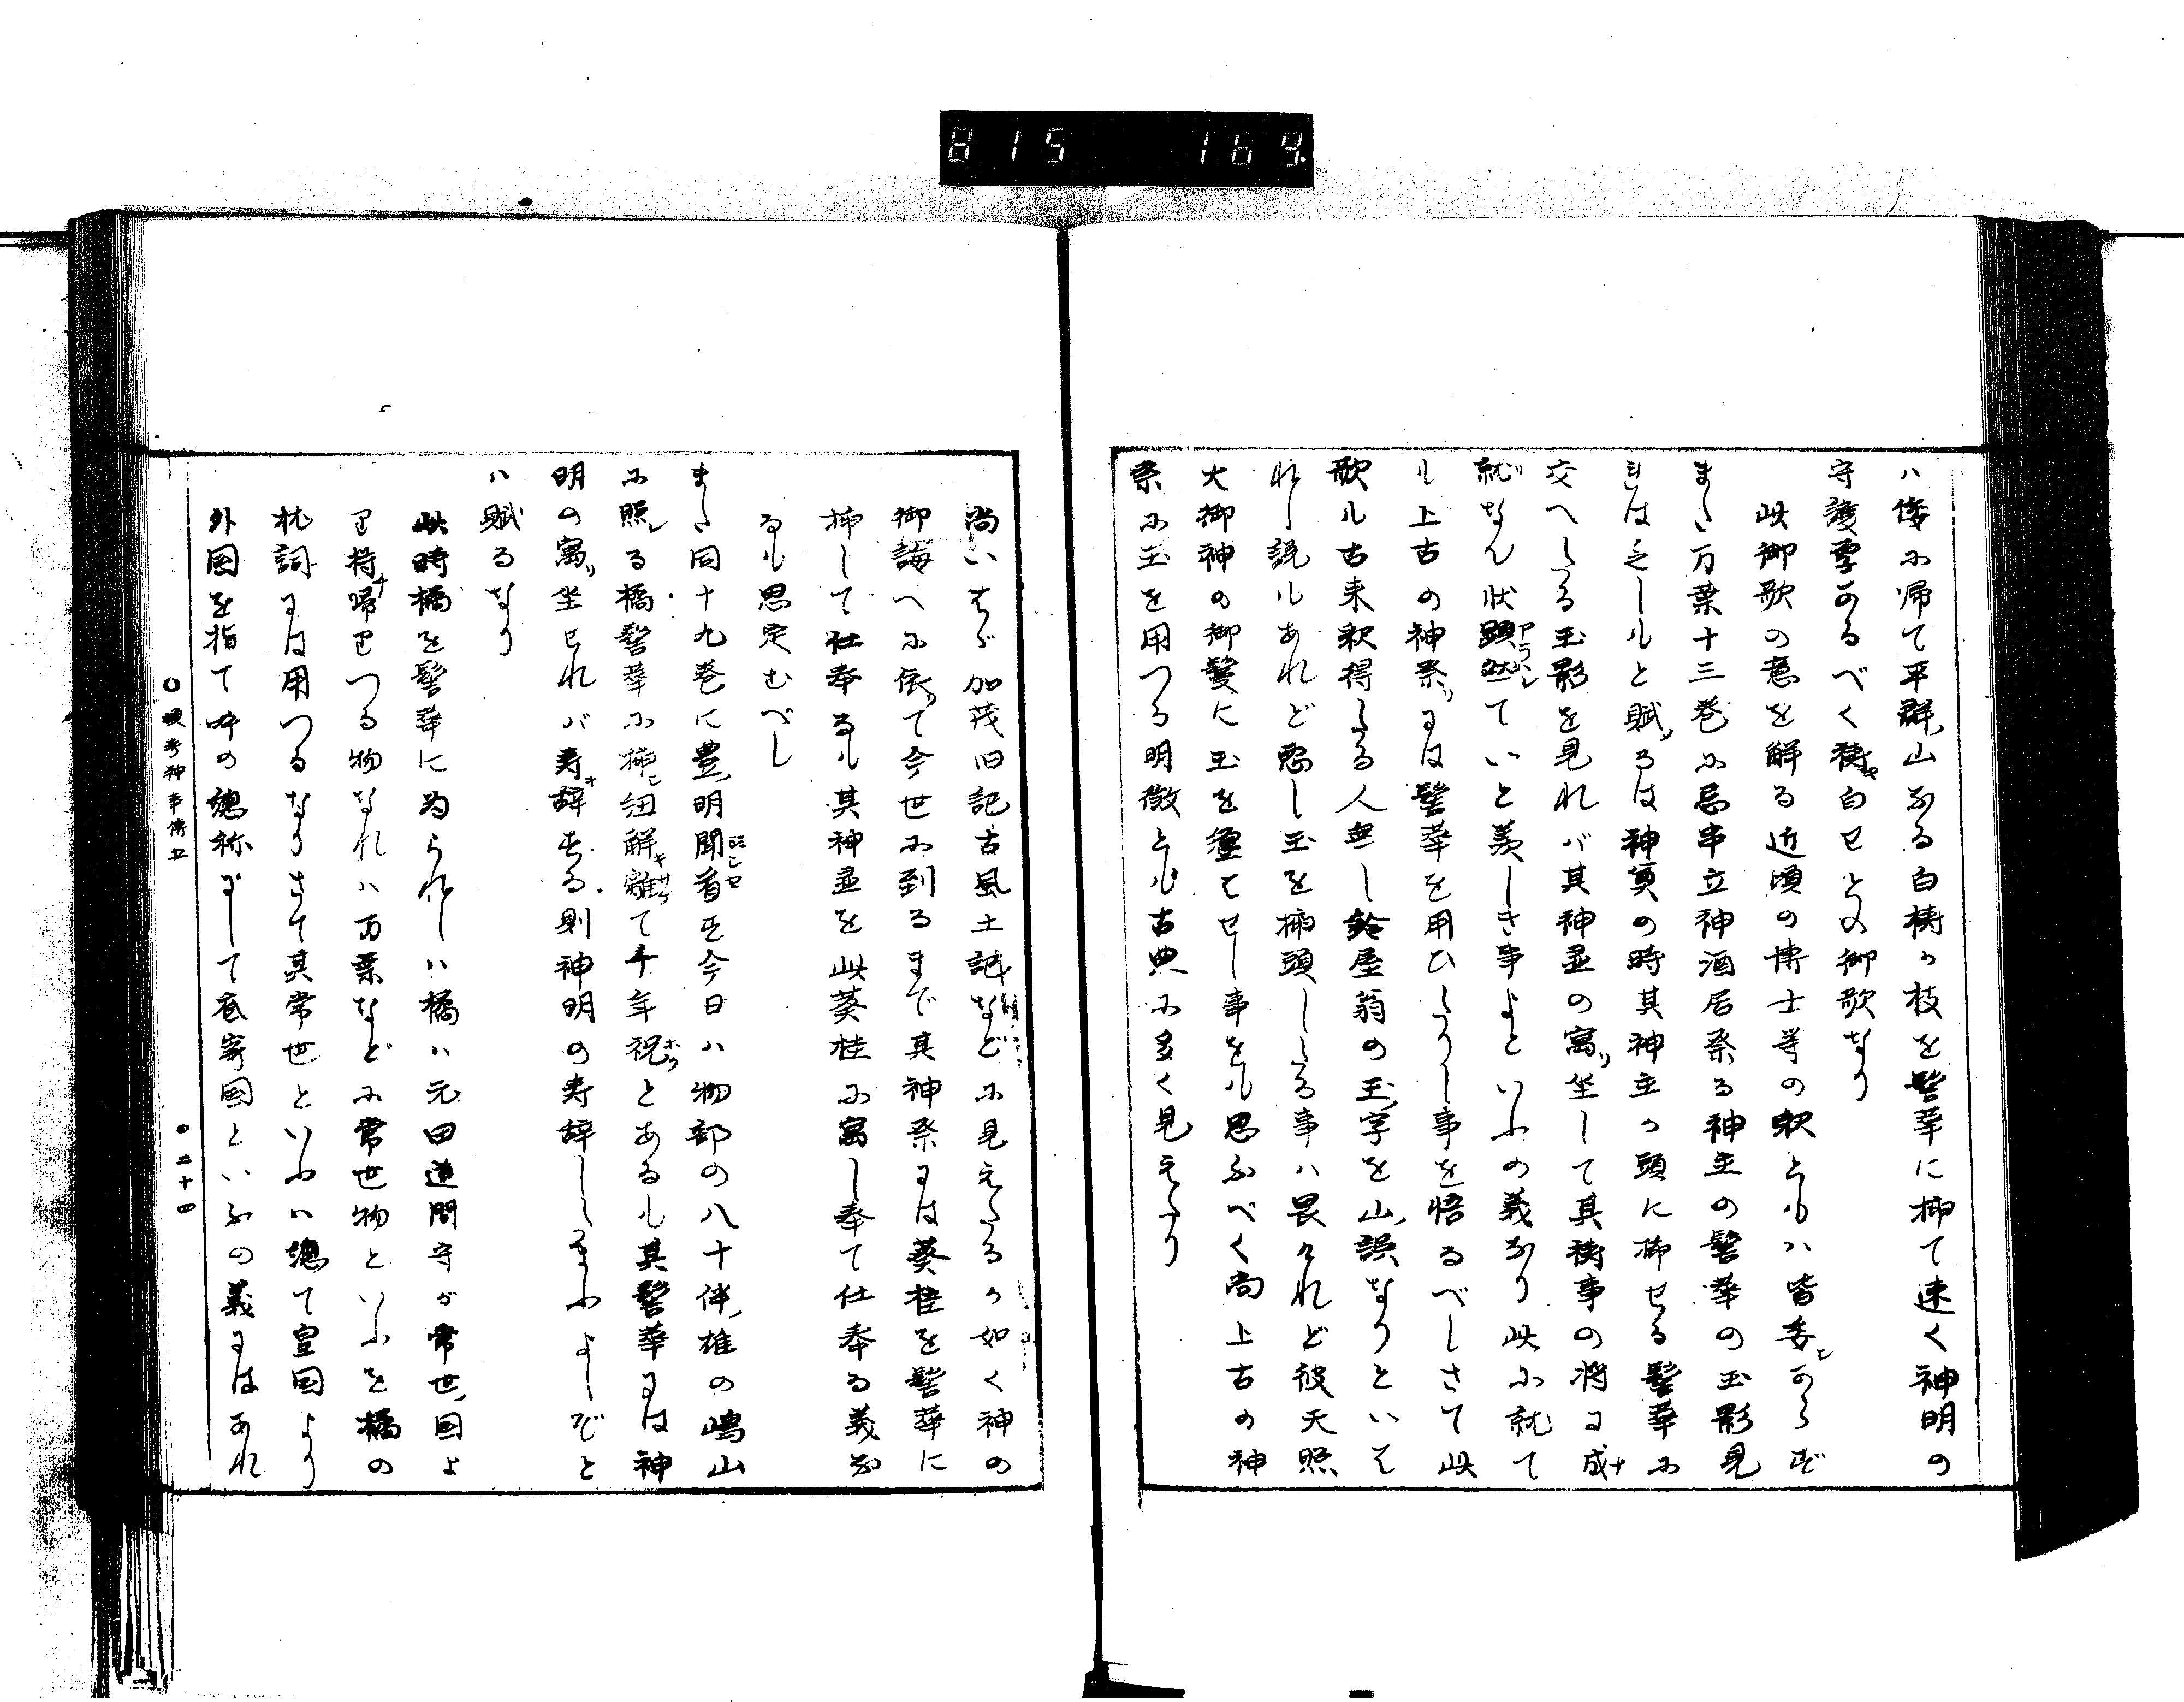 815 169.
ハ倭ふ帰て平群山ある白檮の枝を髻華に挿て速く神明の
守護零あるべく祷白せとの御歌なり
此御歌の意を解る近頃の博士等の釈ともハ皆委からず
また万葉十三巻ふ忌串立神酒居祭る神主の髻華の玉影見
れは乏しもと賦るは神奠の時其神主の頭に挿せる髻華ふ
交へたる玉影を見れバ其神霊の寓坐して其祷事の将に成
就なん状顕然ていと羨しき事よといふの義なり此ふ就て
も上古の神祭には髻華を用ひたりし事を悟るべしさて此
歌も古来釈得たる人無し鈴屋翁の玉字を山誤なりといは
れし説もあれど悪し玉を挿頭したる事ハ畏けれど彼天照
大御神の御鬘に玉を纏はせし事をも思ふべく尚上古の神
祭ふ玉を用つる明徴とも古典ふ多く見えたり
尚いはゞ加茂旧記古風土記などふ見えたるの如く神の
御誨へふ依て今世ふ到るまで其神祭には葵桂を髻華に
挿して社奉るも其神霊を此葵桂ふ寓し奉て仕奉る義な
るも思定むべし
また同十九巻に豊明聞看を今日ハ物部の八十伴雄の嶋山
ふ照る橘髻華ふ挿紐解離て千年祝とあるも其髻華には神
明の寓坐せれバ寿辞たる則神明の寿辞したまふよしぞと
ハ賦るなり
此時橘を髻華に為られしハ橘ハ元田道間守が常世国よ
り持帰りつる物なれハ万葉などふ常世物といふを橘の
枕詞には用つるなりさて其常世といふハ總て皇国より
外国を指て呼の總称にして底寄国といふの義にはあれ
二十四